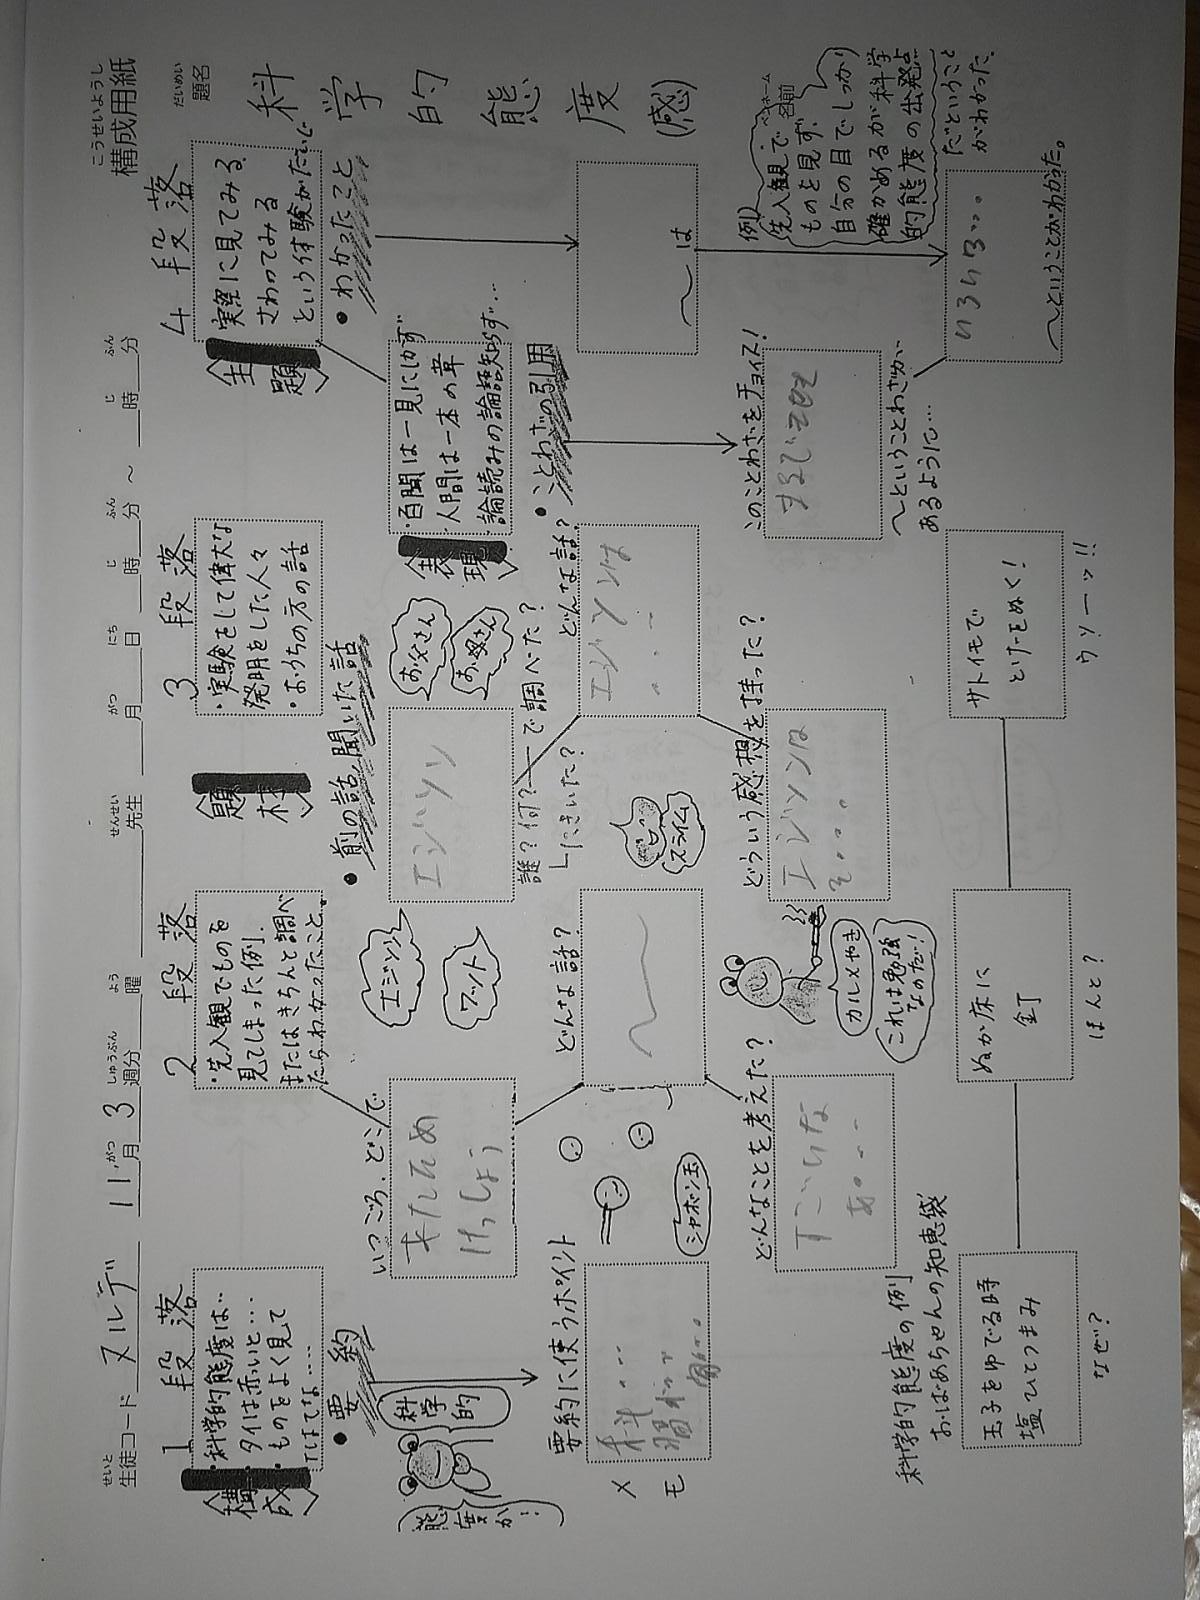 構成用紙
こうせいようし
生徒コード ヌルデ 11月3週分 曜 先生 月 日 時 分 ～ 時 分
せいと がつ しゅうぶん よう せんせい がつ にち じ ふん じ ふん
題名
だいめい
科学的態度(感)
名前
ペンネーム
1段落
構成
・科学的態度は‥
・タイは赤いと…
・ものをよく見て
・要約
科学的
態度か‥
要約に使うポイント
メモ
2段落
・先入観でものを
見てしまった例.
またはきちんと調べ
たらわかったこと
いつごろ、どこで
どんな話?
シャボン玉
どんなことを考えた?
すごいな
あ。‥
題材
3段落
・実験をして偉大な
発明をした人々
・おうちの方の話
・前の話 聞いた話
エジソン
ワット
エジソン
お父さん
お母さん
誰?何?―で調べた?
にきいた?
スライム
どんな話?
エジソンは
どういう感想を持った?
エジソンは
カルメやき
これは勉強
なのだ!
表現
・百聞は一見にしかず
人間は一本の葦
論語読みの論語知らず…
・ことわざの引用
このことわざをチョイス!
～ということわざが
あるように…
4段落
主題
実際に見てみる.
さわってみる
という体験がたいじ
・わかったこと
～は
例)
先入観で
ものを見ず.
自分の目でしっかり
確かめるが科学
的態度の出発点
だということ
がわかった.
いろいろ…
～ということがわかった。
科学的態度の例
おばあちゃんの知恵袋
玉子をゆでる時
塩ひとつまみ
なぜ?
ぬか床に
釘
ほんと?
サトイモで
とげをぬく!
ウソーッ!!